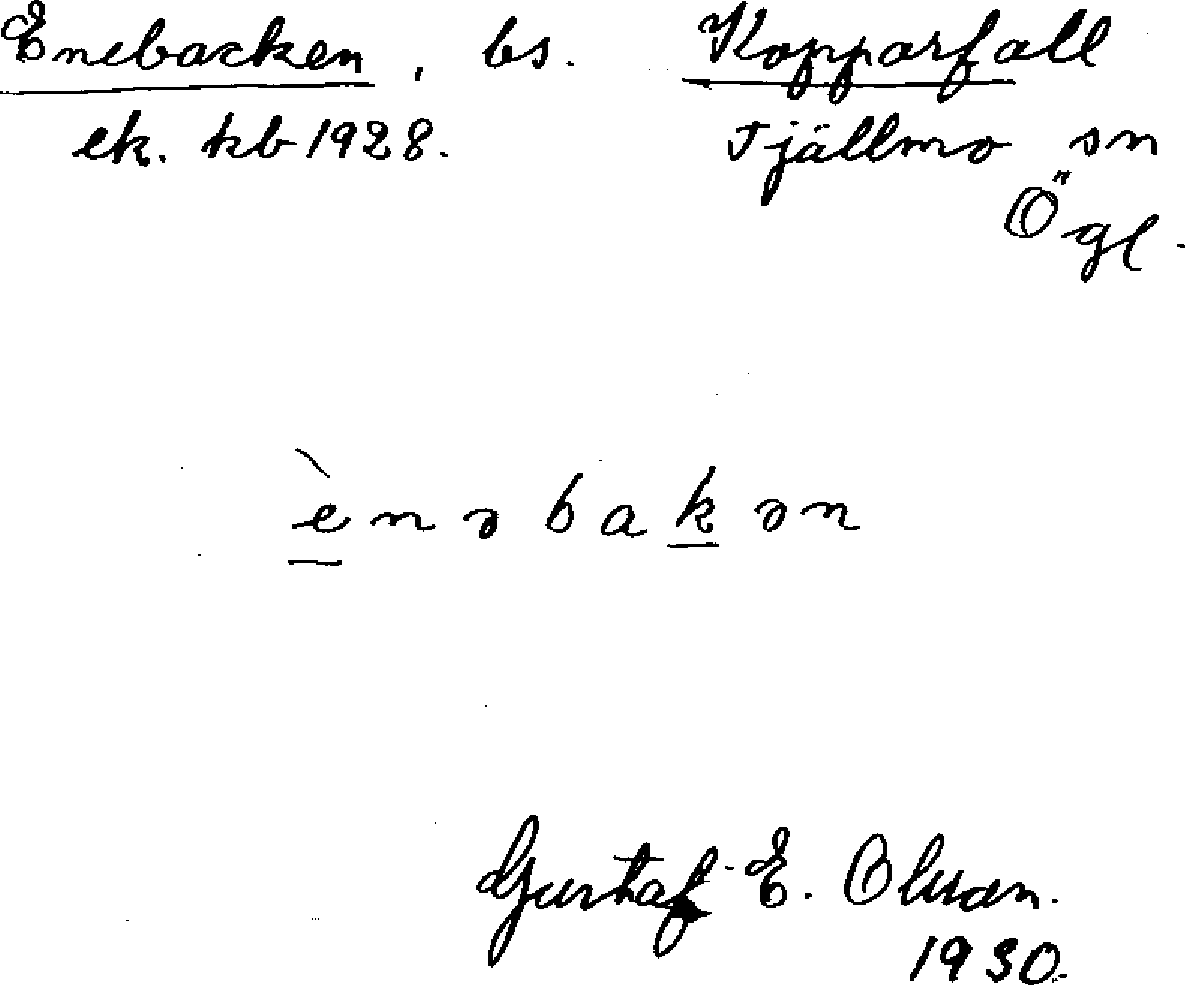 Enebacken, bs. Kopparfall
ek. kb 1928. Tjällmo sn
Ögl.
ènəbakən
Gustaf E. Olson.
1930.